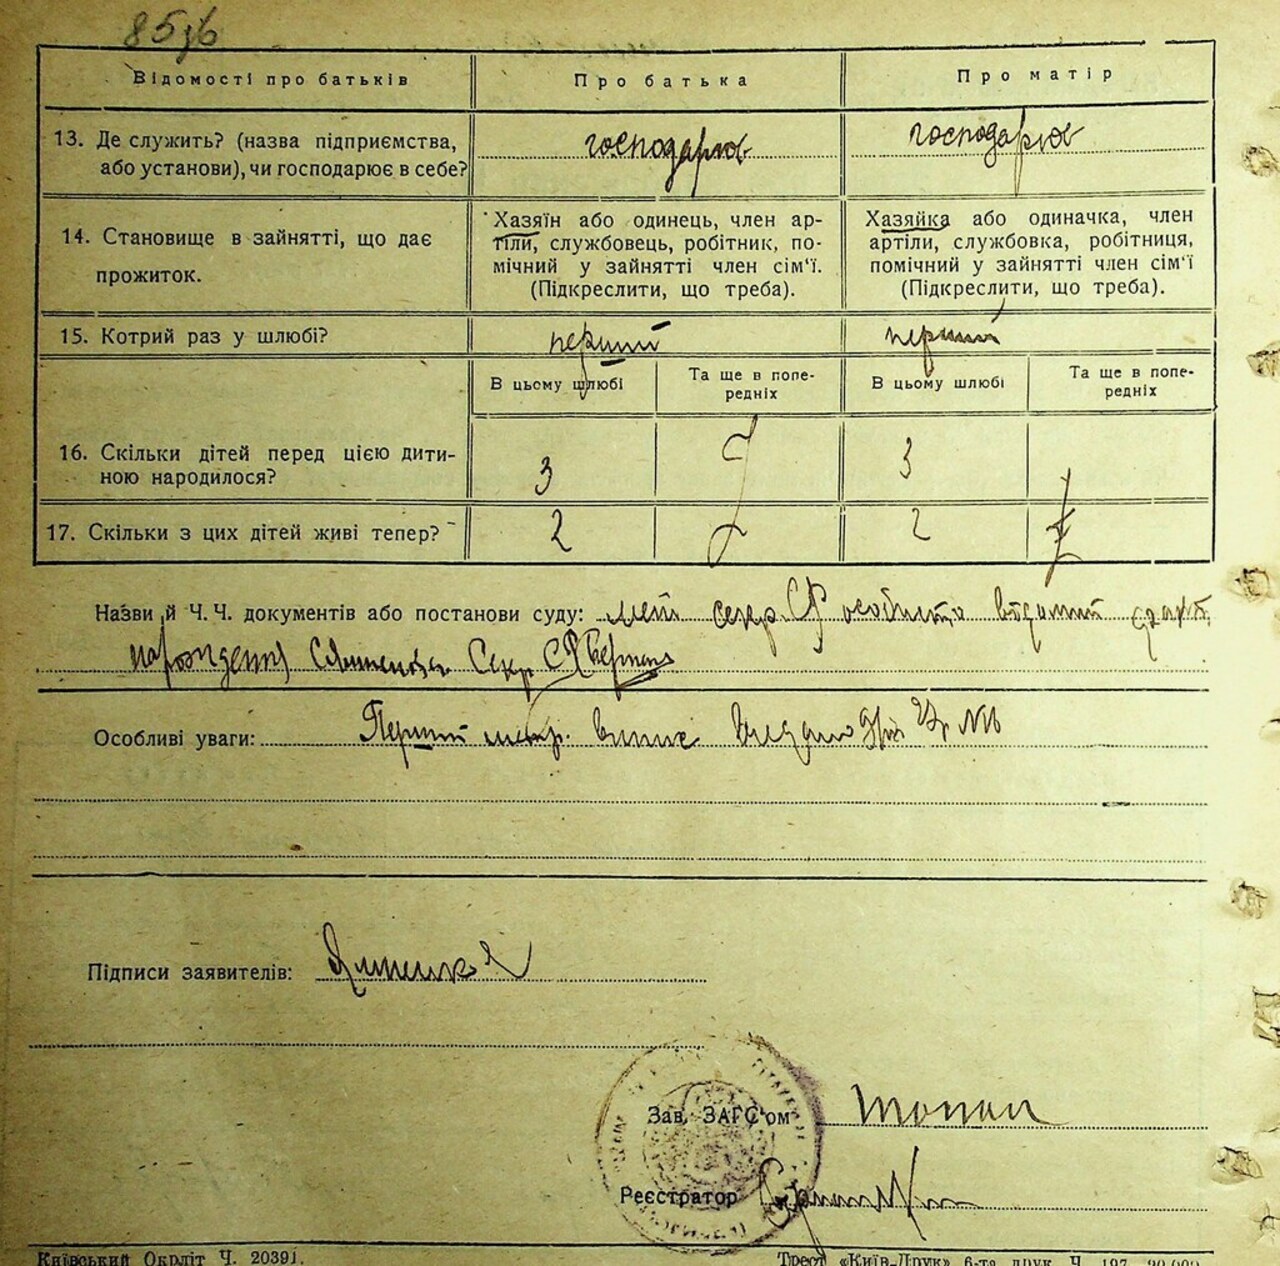 85зв
Відомості про батьків
Про батька
Про матір
13. Де служить? (назва підприємства,
або установи), чи господарює в себе?
господарює
господарює
14. Становище в зайнятті, що дає
прожиток.
Хазяїн або одинець, член ар-
тіли, службовець, робітник, по-
мічний у зайнятті член сім'ї.
(Підкреслити, що треба).
Хазяйка або одиначка, член
артіли, службовка, робітниця,
помічний у зайнятті член сім'ї
(Підкреслити, що треба).
15. Котрий раз у шлюбі?
перший
перший
В цьому шлюбі
Та ще в попе-
редніх
В цьому шлюбі
Та ще в попе-
редніх
16. Скільки дітей перед цією дити-
ною народилося?
3
3
17. Скільки з цих дітей живі тепер?
2
2
Назви й Ч. Ч. документів або постанови суду: секр. СР особисто відомий
народження Секр СР
Особливі уваги: Перший
Підписи заявителів:
Зав. ЗАГС'ом
Реєстратор
Київський Окрліт Ч. 20391.
Трест «Київ-Друк» 6-та друк. Ч. 197